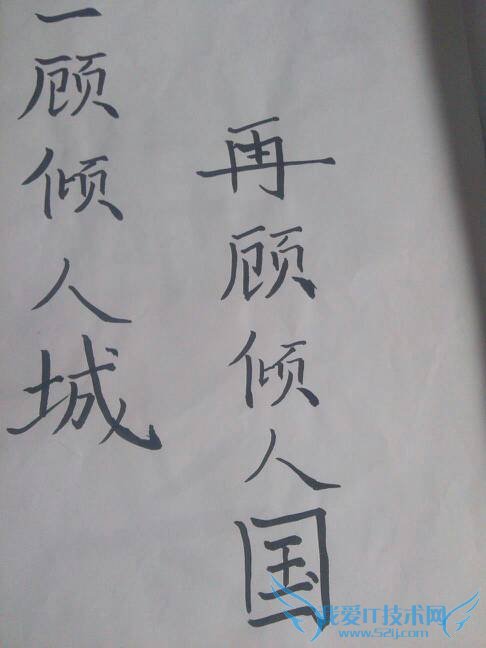 一顾倾人城
再顾倾人国
我爱IT技术网
www.52ij.com